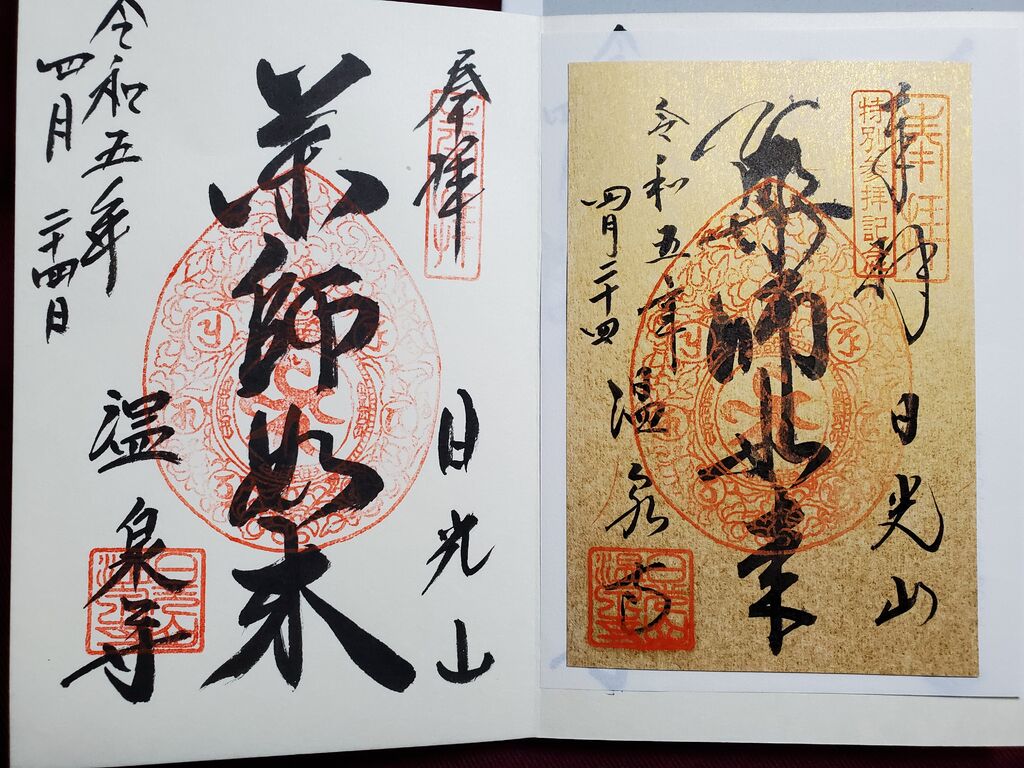 奉拝
日光山
薬師如来
温泉寺
令和五年
四月二十四日
奉拝
特別参拝記
奉拝
日光山
薬師如来
温泉寺
令和五年
四月二十四